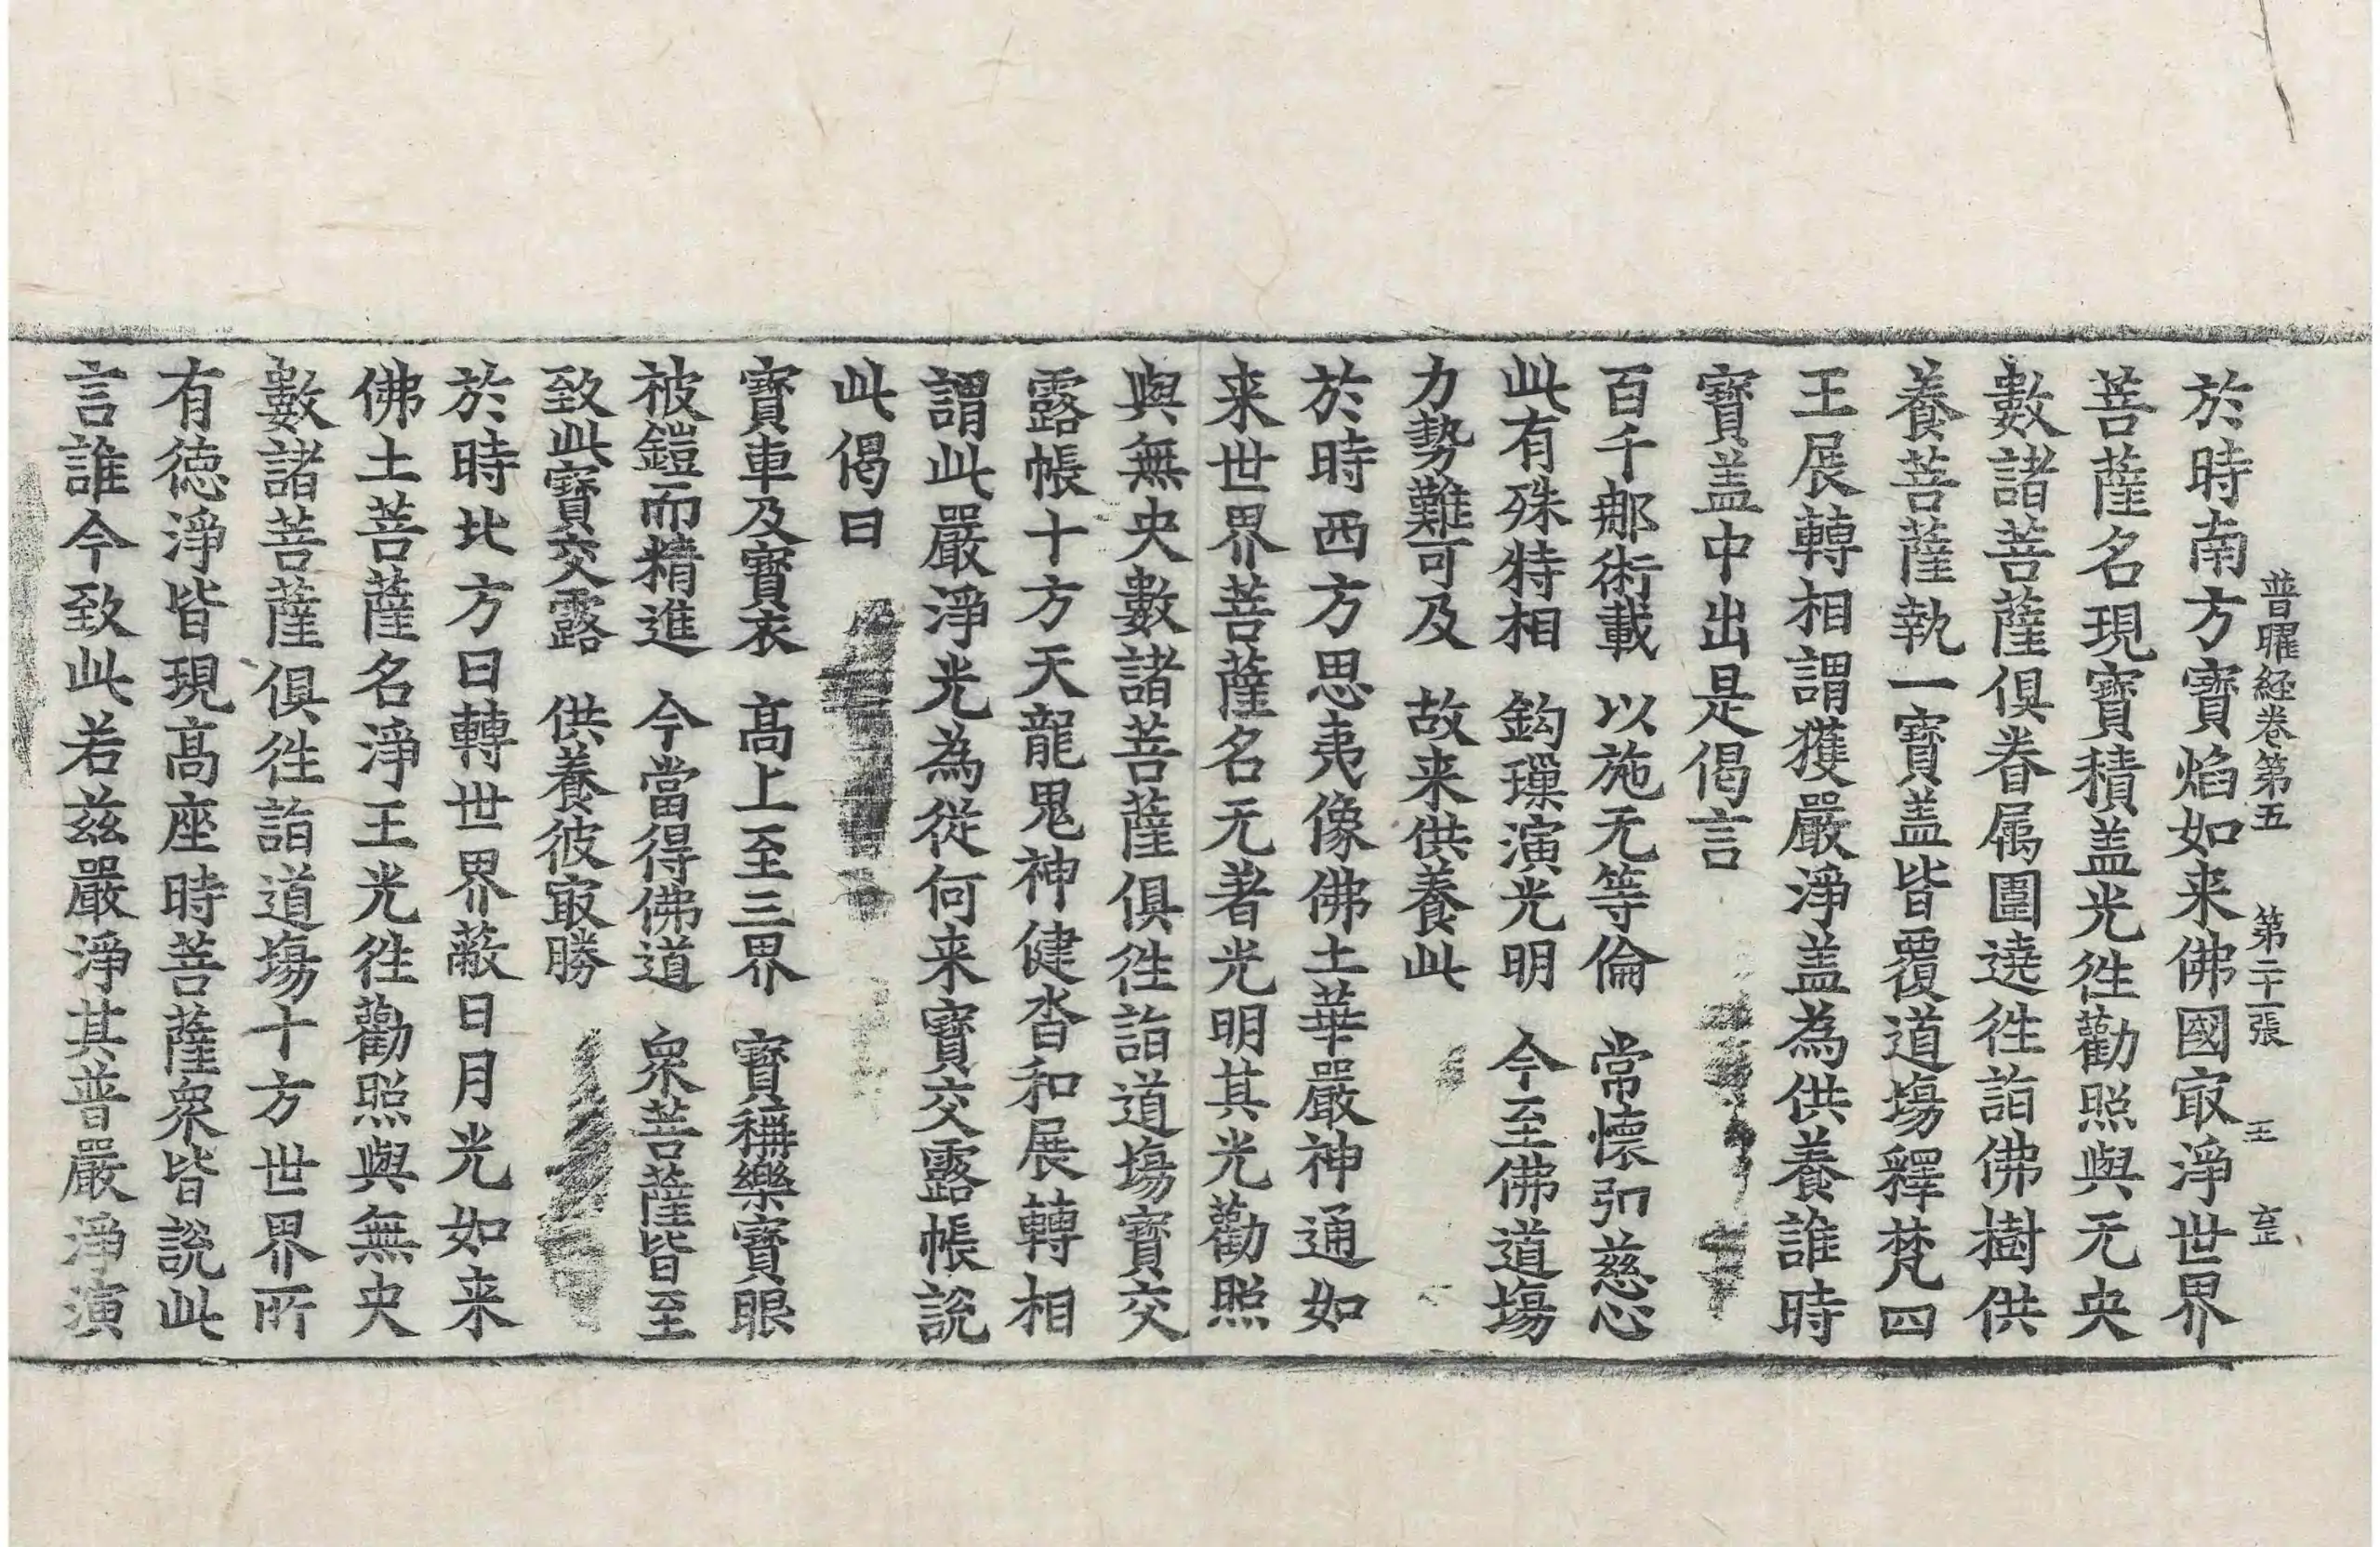 普曜経卷第五 第二十一張 王
於時南方寶焰如来佛國㝡淨世界
菩薩名現寶積盖光徃勸照與无央
數諸菩薩俱眷属圍遶徃詣佛樹供
養菩薩執一寶盖皆覆道塲釋梵四
王展轉相謂獲嚴淨盖為供養誰時
寶盖中出是偈言
百千郍術載 以施无等倫 常懷弘慈心
此有殊特相 鈎璅演光明 今至佛道塲
力勢難可及 故来供養此
於時西方思夷像佛土華嚴神通如
来世界菩薩名无著光明其光勸照
與無央數諸菩薩俱徃詣道塲寶交
露帳十方天龍鬼神健沓和展轉相
謂此嚴淨光為從何来寶交露帳說
此偈曰
寶車及寶衣 高上至三界 寶稱樂寶眼
被鎧而精進 今當得佛道 衆菩薩皆至
致此寶交露 供養彼㝡勝
於時北方日轉世界蔽日月光如来
佛土菩薩名淨王光徃勸照與無央
數諸菩薩俱徃詣道塲十方世界所
有德淨皆現高座時菩薩衆皆說此
言誰今致此若兹嚴淨其普嚴淨演